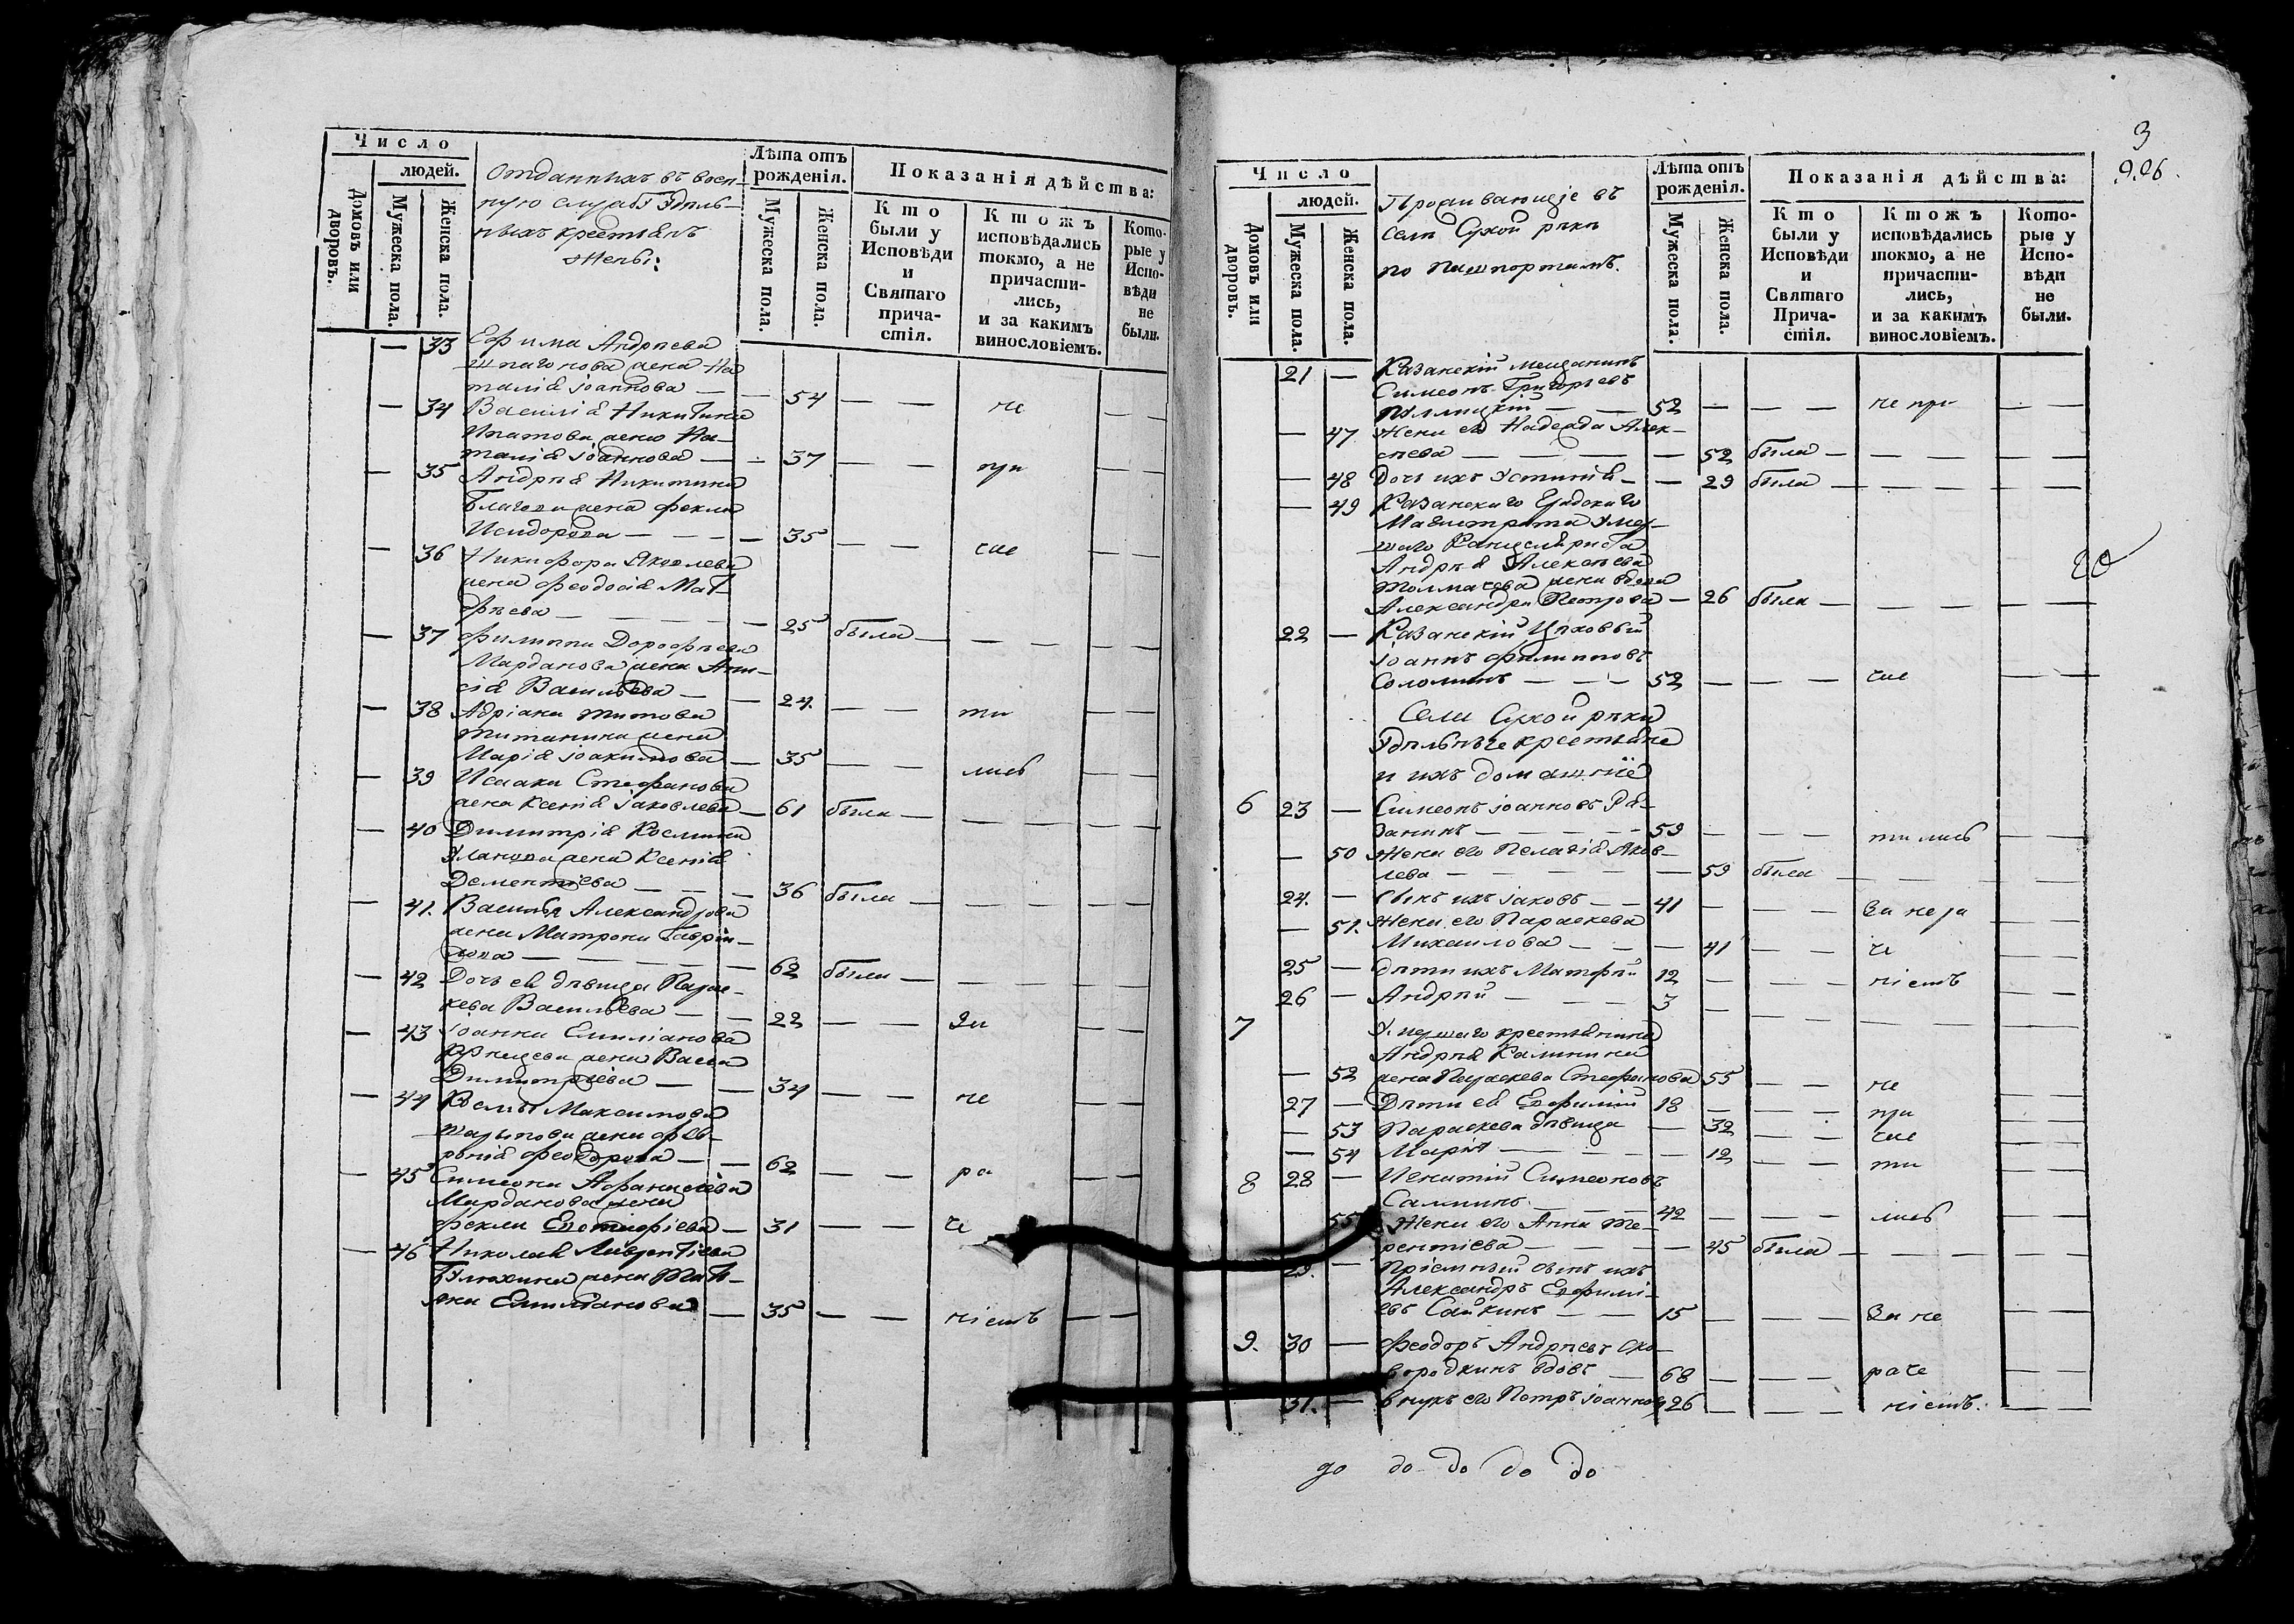 Число
людей.
Домовъ или дворовъ.
Мужеска пола.
Женска пола.
Отданныхъ въ воен-
ную службу Удѣль-
ныхъ крестьянъ
жены:
Лѣта отъ
рожденія.
Мужеска пола.
Женска пола.
Показанія дѣйства:
Кто
были у
Исповѣди
и
Святаго
прича-
стія.
Ктожъ
исповѣдались
токмо, а не
причасти-
лись,
и за какимъ
винословіемъ.
Кото-
рые у
Испо-
вѣди
не
были.
— 33 Ефима Андреева
жена На
талія Іоаннова — — 54 — — не — —
— 34 Василія Никитина
Ипатова жена На-
талія Іоаннова — — 37 — — при — —
— 35 Андрея Никитина
жена Фекла
Исидорова — — — — 35 — — час — —
— 36 Никифора Яковлева
жена Феодосія Мат-
фѣева — — — — — 25 была — — — — —
— 37 Филиппа Дорофѣева
Марданова жена Ани-
сія Васильева — — 24. — — — —
— 38 Адріана Титова
Титанина жена
Марія Іоакимова — 35 — — ти — —
— 39 Исаака Стефанова
жена Ксенія Іаковлева — 61 была — — лись — —
— 40 Димитрія Космина
Уланова жена Ксенія
Дементіева — — — 36 была — — — — —
— 41. Василья Александрова
жена Матрона Гаврі-
лова — — — — — 62 была — — — — —
— 42 Дочь ея дѣвица Парас-
кева Васильева — — 22 — — За — —
— 43 Іоанна Емиліанова
жена Васса
Димитріева — — 34 — — не — —
— 44 Космы Максимова
жена Фев-
ронія Феодорова — — 62 — — ра — —
— 45 Симеона Афанасіева
Марданова жена
Фекла Евтифіева — 31 — — че
— 46 Николая Лаврентіева
жена Тать-
яна Емиліанова — 35 — — ніемъ — —
3
906.
Число
людей.
Домовъ или дворовъ.
Мужеска пола.
Женска пола.
Проживающіе въ
селѣ Сухой рѣкѣ
по пашпортамъ.
Лѣта отъ
рожденія.
Мужеска пола.
Женска пола.
Показанія дѣйства:
Кто
были у
Исповѣди
и
Святаго
Прича-
стія.
Ктожъ
исповѣдались
токмо, а не
причасти-
лись,
и за какимъ
винословіемъ.
Кото-
рые у
Испо-
вѣди
не
были.
21 — Казанскій мещанинъ
Симеонъ Григорьевъ
— — 52 — — — не при — —
— 47. Жена его Надежда Алек-
сѣева — — — — — 52 была — — — — —
— 48 Дочь ихъ Устинія — — 29 была — — — — —
— 49 Казанскаго Градскаго
Магистрата Умер-
шаго Канцеляриста
Андрея Алексѣева
Толмачева жена вдова
Александра Петрова — 26 была — — — — —
22 — Казанскій Цѣховый
Іоаннъ Филипповъ
Соломинъ — — — 52 — — — час — —
Села Сухой рѣки
Удѣльные крестьяне
и ихъ домашніе
6 23 — Симеонъ Іоанновъ Ря-
занинъ — — — — — 59 — — — тились — —
— 50 Жена его Пелагія Яков-
лева — — — — — 59 была — — — — —
24. — Сынъ ихъ Іаковъ — — 41 — — — За нера — —
— 51. Жена его Параскева
Михаилова — — — 41 — — че — —
25 — Дѣти ихъ Матфій 12 — — — ніемъ — —
26 — Андрей — — — 3 — — — — — —
7 Умершаго крестьянина
Андрея Калинина
— 52 жена Параскева Стефанова 55 — — не — —
27 — Дѣти ея Евфимій 18 — — — при — —
— 53 Параскева дѣвица — 32 — — час — —
— 54 Марія — — — — — 12 — — ти — —
8 28 — Игнатій Симеоновъ
Саминъ — — — 42 — — — лись — —
55 Жена его Анна Те-
рентіева — — — — — 45 была — — — — —
29. — Пріемный сынъ ихъ
Александръ Евфимі-
евъ Сайкинъ — — 15 — — — За не — —
9. 30 — Феодоръ Андреевъ Ско-
вородкинъ вдовъ — 68 — — — раче — —
31. — внукъ его Петръ Іоанновъ 26 — — — ніемъ. — —
до до до до до